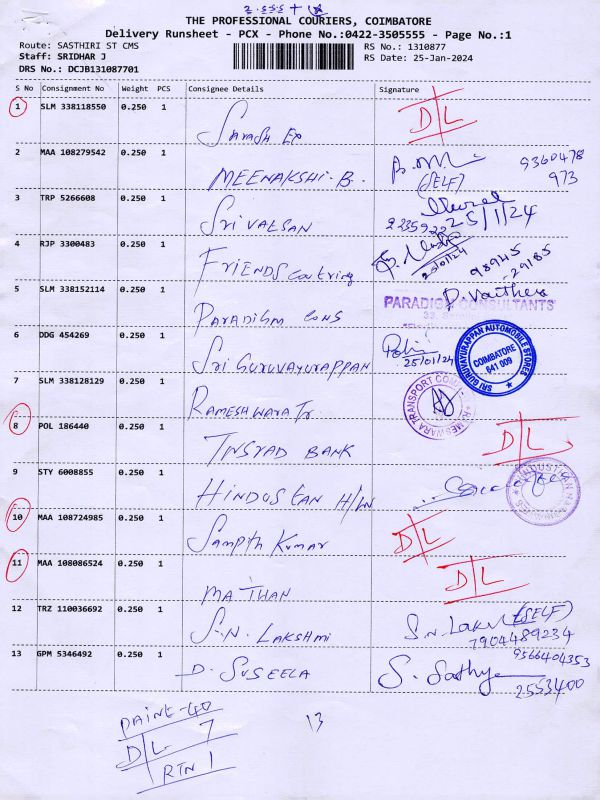 THE PROFESSIONAL COURIERS, COIMBATORE
Delivery Runsheet - PCX - Phone No.:0422-3505555 - Page No.:1
Route: SASTHIRI ST CMS
RS No.: 1310877
Staff: SRIDHAR J
RS Date: 25-Jan-2024
DRS No.: DCJB131087701
S No Consignment No Weight PCS Consignee Details Signature
1 SLM 338118550 0.250 1 D/L
2 MAA 108279542 0.250 1 MEENAKSHI. B. (SELF) 9360478 973
3 TRP 5266608 0.250 1 SRIVALSAN 25/1/24
4 RJP 3300483 0.250 1 FRIENDS 25/01/24 98945 -29185
5 SLM 338152114 0.250 1 PARADIGM CONS PARADIGM CONSULTANTS
6 DDG 454269 0.250 1 SRI GURUVAYURAPPAN 25/01/24 SRI GURUVAYURAPPAN AUTOMOBILE STORES COIMBATORE 641 009
7 SLM 338128129 0.250 1 RAMESHWARA Tr
8 POL 186440 0.250 1 BANK D/L
9 STY 6008855 0.250 1 HINDUSTAN H/W
10 MAA 108724985 0.250 1 SAMPTH KUMAR D/L
11 MAA 108086524 0.250 1 MATHAN D/L
12 TRZ 110036692 0.250 1 S.N. LAKSHMI (SELF) 7904489234
13 GPM 5346492 0.250 1 D. SUSEELA S. Sathya 9566404353 2553400
13
D/L 7
RTN 1